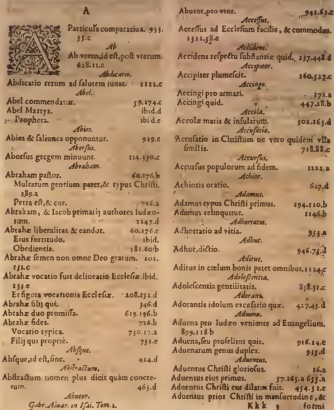 A
Particula comparatiua. 935.
35.c
Ab
Ab vtero, id est, post vterum.
688.11.c
Abdicatio.
Abdicatio rerum ad salutem iuuat. 1122.c
Abel.
Abel commendatur. 59.174.c
Abel Martyr. ibid.d
Propheta. ibi de
Abies.
Abies & saliunca opponuntur. 919.e
Abortus.
Abortus gregem minuunt. 114.570.c
Abraham.
Abraham pastor. 60.176.b
Multarum gentium pater, & typus Christi.
189.a
Petra est, & cur. 716.a
Abraham, & Iacob primarij authores Iudæo-
rum 1147.d
Abrahæ liberalitas & candor. 60.176.c
Eius fortitudo. ibid.
Obedientia. 181.60 b
Abrahæ semen non omne Deo gratum. 101.
132.c
Abrahæ vocatio fuit delineatio Ecclesiæ. ibid.
133.c
Effigura vocationis Ecclesiæ. 108.352.d
Abrahæ filij qui. 346.d
Abrahæ duo promissa. 619.196.b
Abrahæ fides. 716.b
Vocatio typica. 730.17.a
Filij qui proprie. 731.c
Absque.
Absque, id est, sine. 424.d
Abstractum.
Abstractum nomen plus dicit quàm concre-
tum. 463.d
Abutor.
Gabr. Aluar. in Isai. Tom. 2.
Abutor, pro vtor. 942.63.c
Accessus.
Accessus ad Ecclesiam facilis, & commodus.
1322.58.c
Accidens.
Accidens respectu substantiæ quid. 237.448.d
Accipiter.
Accipiter plumescit. 160.527.c
Accingo.
Accingi pro armari. 373.a
Accingi quid. 447.18.b
Accola.
Accolæ maris & insularum. 302.163.d
Accusatio.
Accusatio in Christum ne vero quidem
similis. 718.88.c
Accursus.
Accursus populorum ad fidem. 1122.a
Achior.
Achiotis oratio. 607.d
Adamus.
Adamus typus Christi primus. 194.110.b
Adamus relinquitus. 1146.b
Adhortatio.
Adhortatio ad vitia. 955.a
Adhuc.
Adhuc, dictio. 946.73.d
Aditus.
Aditus in cœlum bonis patet omnibus. 1124.c
Adolescentia.
Adolescentis gentilitatis. 838.51.c
Adorans.
Adorantis idolum excæsatio quæ. 427.43.d
Aduena.
Aduena pro Iudæo veniente ad Euangelium.
899.118 b
Aduena, seu proselitus quis. 916.14.c
Aduenarum genus duplex. 935.d
Aduentus.
Aduentus Christi gloriosus. 16.a
Aduentus eius primus. 57.165.a 653.a
Aduentus Christi cur dilatus fuit. 454.31.c
Aduentus prior Christi in mansuetudine &
Kkk 3 formi